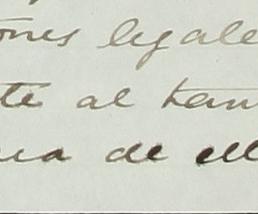 ones legale
te al tem
ea de ell